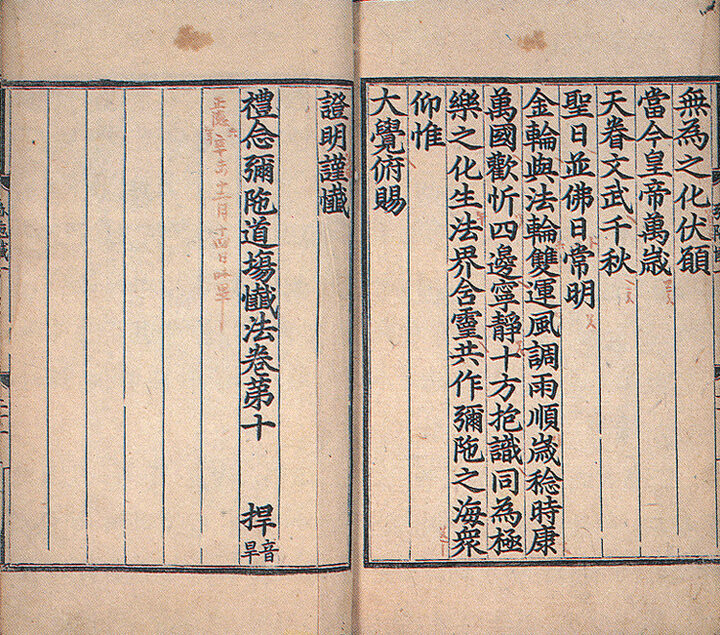 無為之化伏願
當今皇帝萬歳
天眷文武千秋
聖日並佛日常明
金輪與法輪雙運風調雨順歳稔時康
萬國歡忻四邊寧靜十方抱識同為極
樂之化生法界含靈共作彌陁之海衆
仰惟
大覺俯賜
證明謹懺
禮念彌陁道塲懺法卷第十 捍音旱
十二月十四日